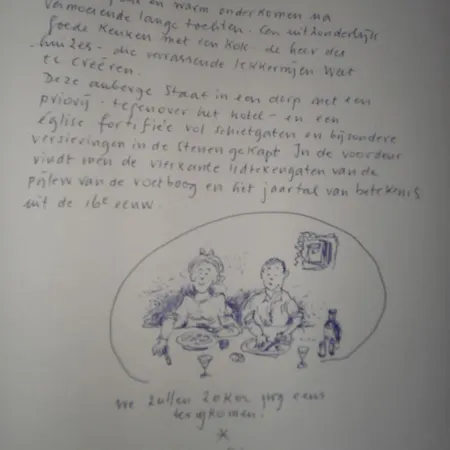 en warm onderkomen na
vermoeiende lange tochten. Een uitzonderlijk
goede keuken met een kok - de heer des
huizes - die verrassende lekkernijen weet
te creëren.
Deze auberge staat in een dorp met een
priorij - tegenover het hotel - en een
église fortifiée vol schietgaten en bijzondere
versieringen in de stenen gekapt. In de voordeur
vindt men de vierkante lidtekengaten van de
pijlen van de voetboog en het jaartal van betekenis
uit de 16e eeuw.
We zullen zeker nog eens
terugkomen.
*